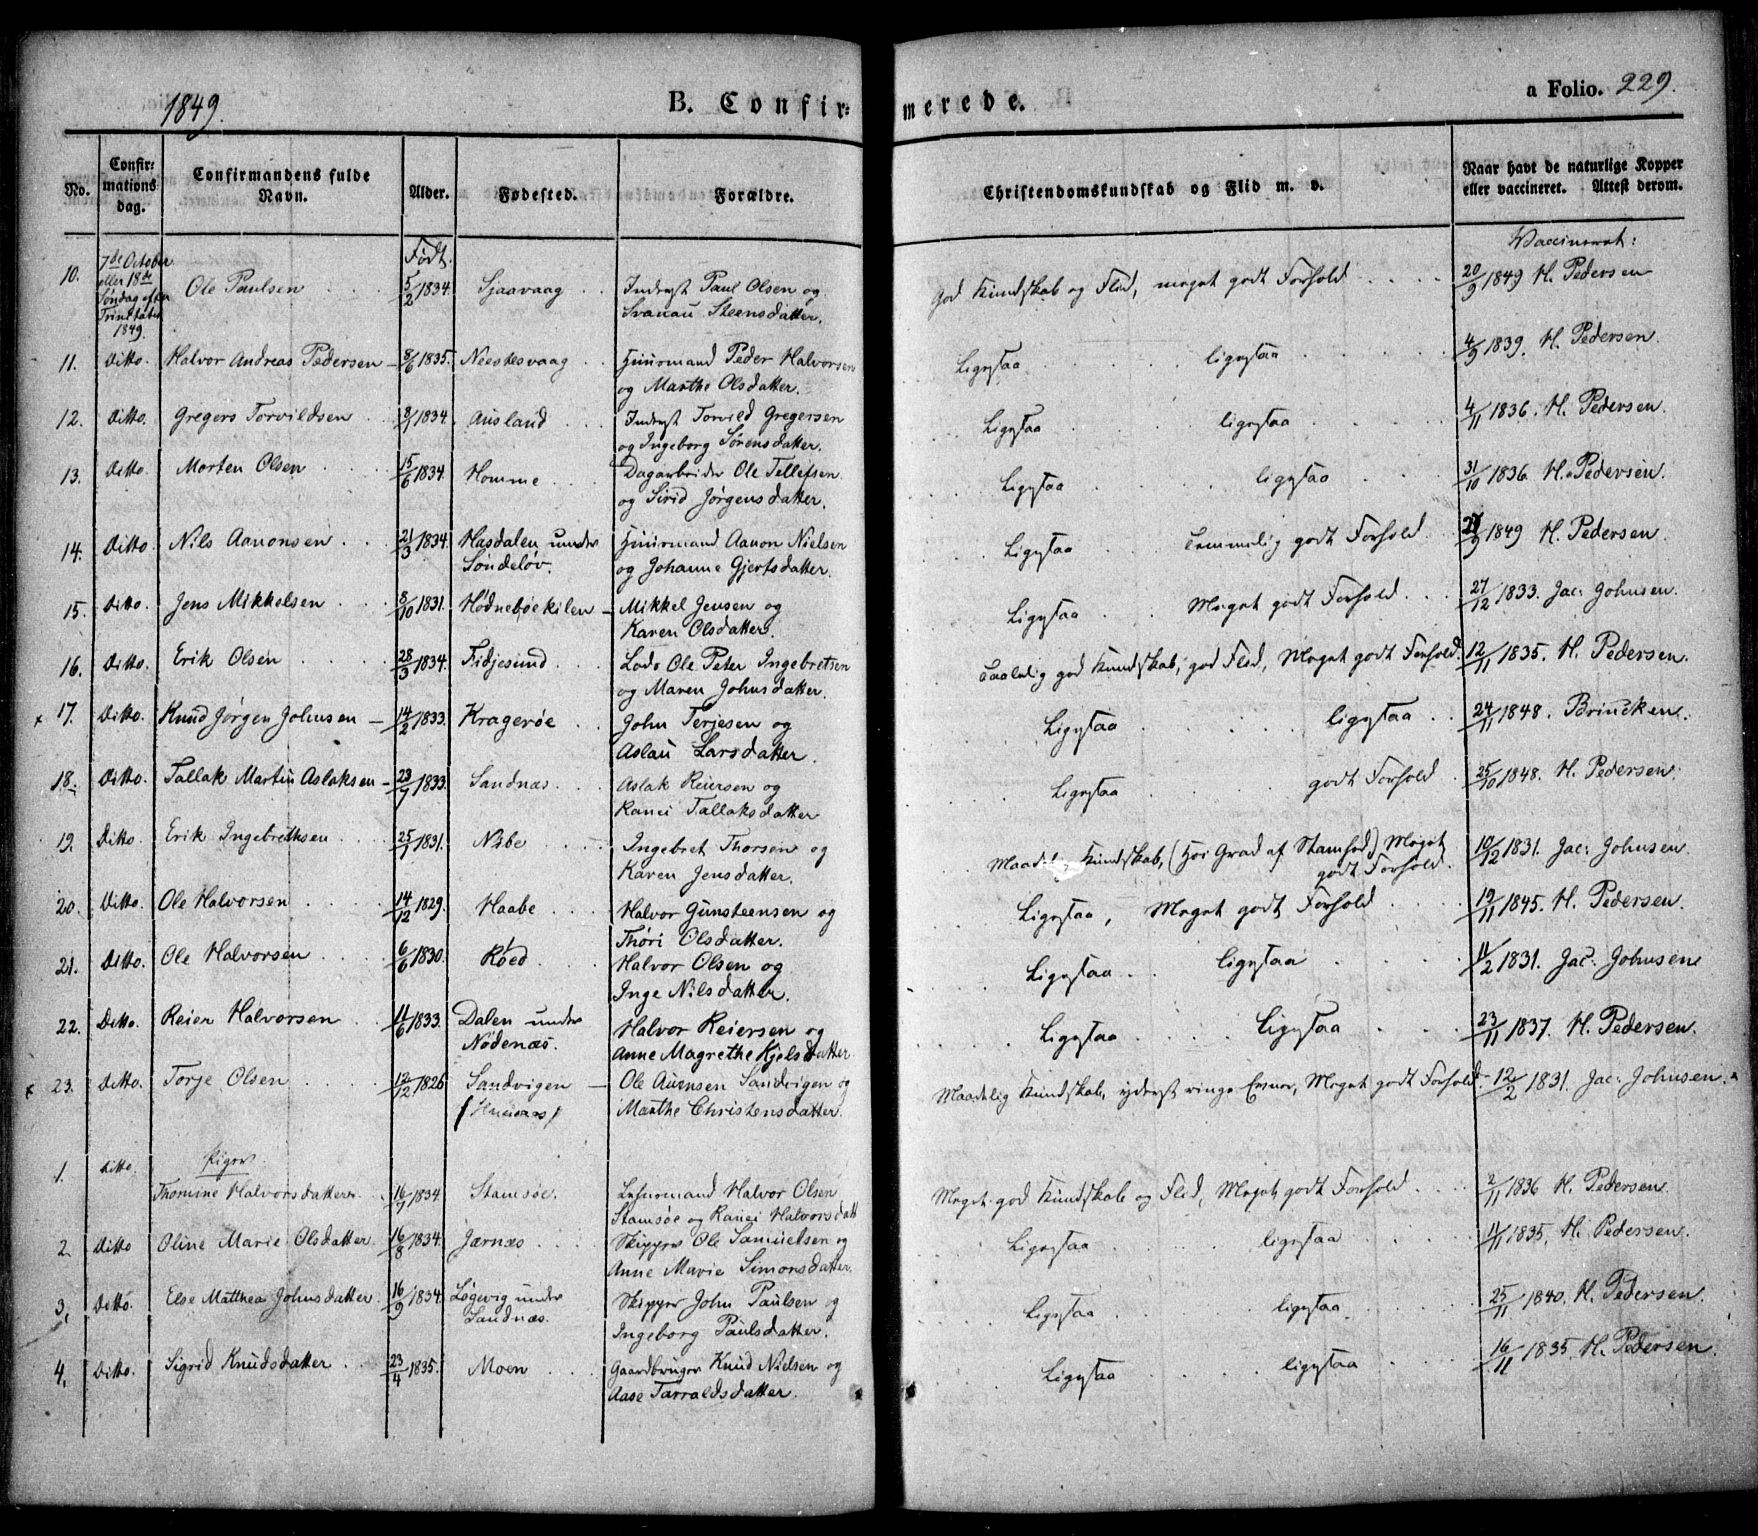 1849.
B. Confir=
merede.
a Folio. 229.
No.
Confir=
mations
dag.
Confirmandens fulde
Navn.
Alder.
Fødested.
Forældre.
Christendomskundskab og Flid m. v.
Naar havt de naturlige Kopper
eller vaccineret. Attest derom.
Vaccineret:
10. 7de October
eller 18de
Søndag efter
Trinitatis
1849.
Ole Paulsen
Født.
5/2 1834. Sjaavaag
Inderst Paul Olsen og
Svanau Steensdatter.
God Kundskab og Flid, meget godt Forhold
20/9 1849 H. Pedersen
11. Ditto. Halvor Andreas Pedersen 8/6 1835. Neestesvaag
Huusmand Peder Halvorsen
og Marthe Olsdatter.
Ligestaa ligestaa 4/9 1839. H. Pedersen.
12. Ditto. Gregers Torvildsen 8/1 1834. Ausland
Inderst Torvild Gregersen
og Ingeborg Sørensdatter.
Ligestaa ligestaa 4/11 1836. H. Pedersen.
13. Ditto. Morten Olsen 15/6 1834. Homme
Dagarbeider Ole Tellefsen
og Sirid Jørgensdatter.
Ligestaa ligestaa 31/10 1836. H. Pedersen.
14. Ditto. Nils Aanonsen 21/3 1834. Hasdalen under
Søndeløv.
Huusmand Aanon Nielsen
og Johanne Gjertsdatter.
Ligestaa Temmelig godt Forhold /9 1849 H. Pedersen.
15. Ditto. Jens Mikkelsen 8/10 1831. Hødnebøekilen
Mikkel Jensen og
Karen Olsdatter.
Ligestaa Meget godt Forhold 27/12 1833. Jac: Johnsen.
16. Ditto. Erik Olsen 28/3 1834. Fidjesund
Lods Ole Peter Ingebretsen
og Maren Johnsdatter.
Taalelig god Kundskab, god Flid, Meget godt Forhold. 12/11 1835. H. Pedersen.
x 17. Ditto. Knud Jørgen Johnsen 14/2 1833. Kragerøe
John Terjesen og
Aslau Larsdatter.
Ligestaa ligestaa 24/11 1848. Brincken.
18. Ditto. Tallak Martin Aslaksen 23/7 1833. Sandnæs
Aslak Reiersen og
Ranei Tallaksdatter
Ligestaa godt Forhold 25/10 1848. H. Pedersen.
19. Ditto. Erik Ingebrethsen 25/1 1831. Nibe
Ingebret Thorsen og
Karen Jensdatter.
Kundskab, (høi Grad af Stamhed) Meget
godt Forhold. 10/12 1831. Jac: Johnsen.
20. Ditto. Ole Halvorsen 14/12 1829. Haabe
Halvor Gunsteensen og
Thøri Olsdatter.
Ligestaa, Meget godt Forhold 19/11 1845. H. Pedersen.
21. Ditto. Ole Halvorsen 6/6 1830. Røed
Halvor Olsen og
Inge Nilsdatter.
Ligestaa ligestaa 11/2 1831. Jac: Johnsen
22. Ditto. Reier Halvorsen 11/6 1833. Dalen under
Nødenæs.
Halvor Reiersen og
Anne Magrethe Kjelsdatter
Ligestaa Ligestaa 23/11 1837. H. Pedersen.
x 23. Ditto. Torje Olsen 12/12 1826 Sandvigen
Ole Aunsen Sandvigen og
Marthe Christensdatter.
Maadelig Kundskab, yderst ringe Evner, Meget godt Forhold 12/2 1831. Jac: Johnsen.
Piger
1. Ditto. Thomine Halvorsdatter 16/7 1834. Stamsøe.
Lehnsmand Halvor Olsen
Stamsøe og Ranei Halvorsdatt
Meget god Kundskab og Flid, Meget godt Forhold 2/11 1836 H. Pedersen.
2. Ditto Oline Marie Olsdatter 16/8 1834. Jærnæs
Skipper Ole Samuelsen og
Anne Marie Simonsdatter.
Ligestaa ligestaa 4/11 1835. H. Pedersen.
3. Ditto. Else Matthea Johnsdatter 16/9 1834. Løgevig under
Sandnæs.
Skipper John Paulsen og
Ingeborg Paulsdatter.
Ligestaa ligestaa 25/11 1840. H. Pedersen.
4. Ditto. Sigrid Knudsdatter 23/4 1835. Moen
Gaardbruger Knud Nielsen og
Aase Tarraldsdatter.
Ligestaa ligestaa 16/11 1835 H. Pedersen.